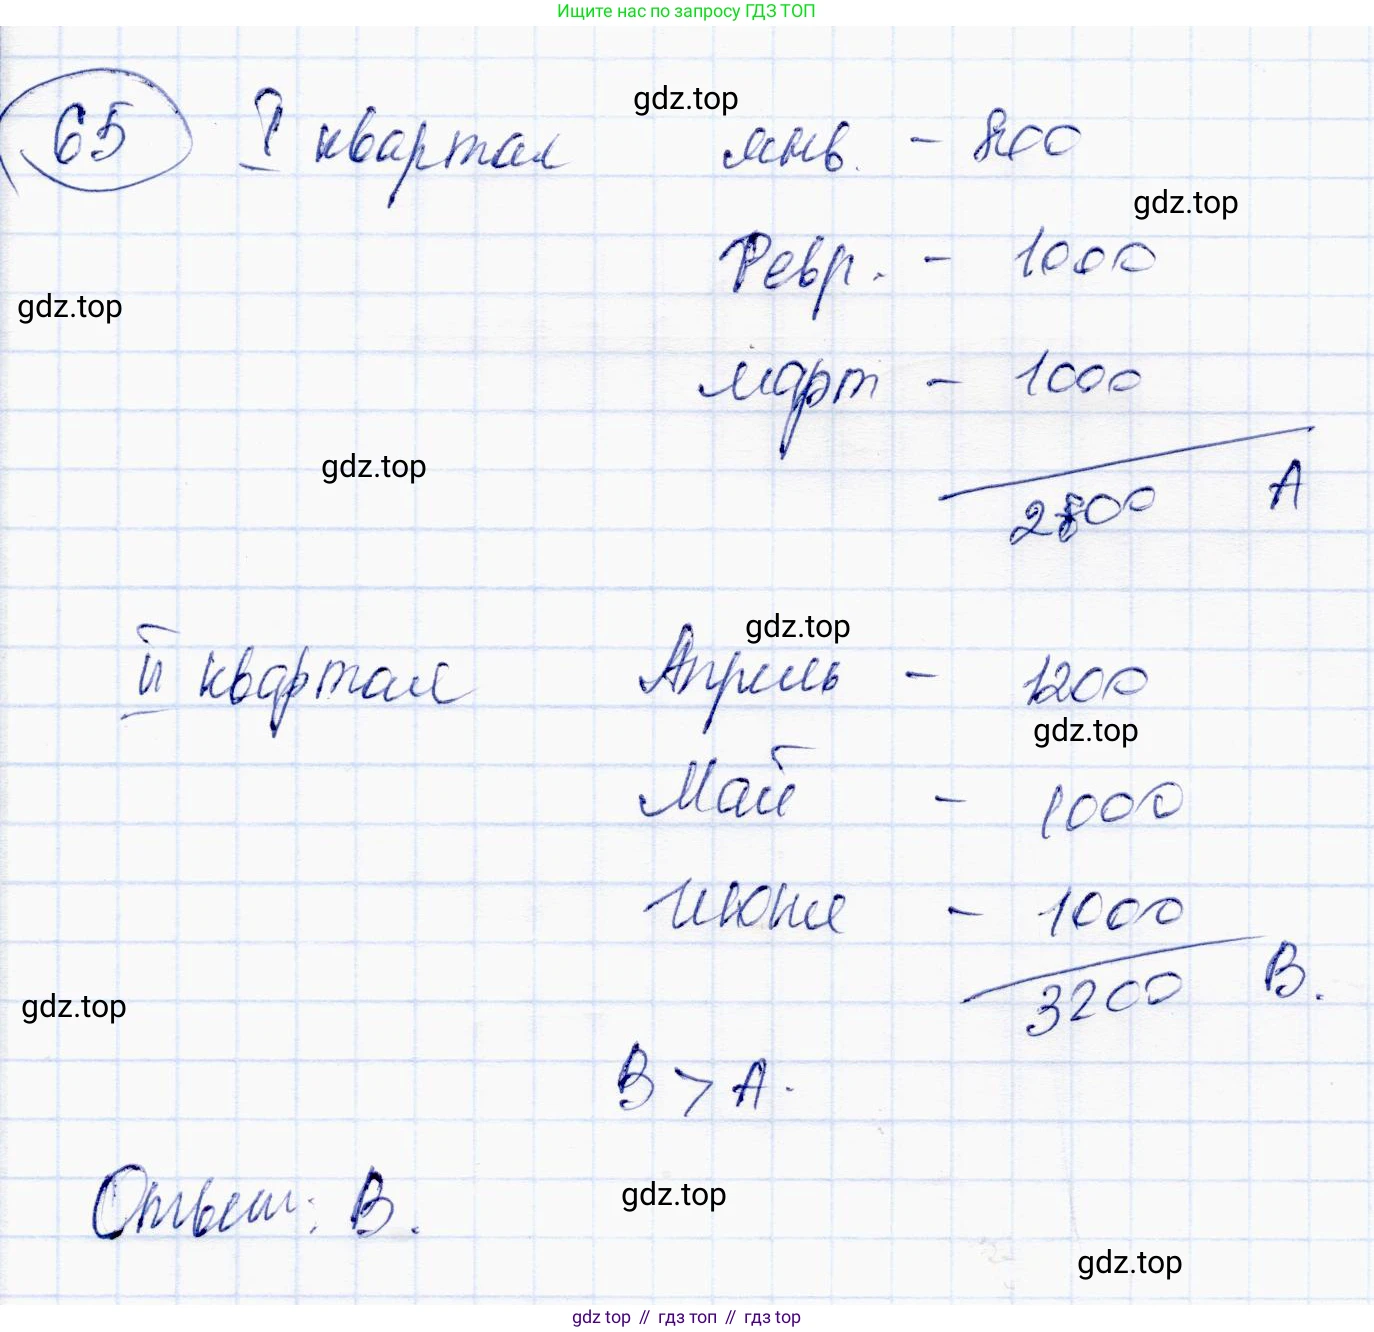 Ищите нас по запросу ГДЗ ТОП
65 I квартал янв. - 800
gdz.top
gdz.top
Февр. - 1000
gdz.top
март - 1000
gdz.top
2800 A
gdz.top
II квартал Апрель - 1200
gdz.top
Май - 1000
июнь - 1000
3200 B.
gdz.top
B > A.
Ответ: B.
gdz.top
gdz.top
gdz top // гдз топ // gdz top